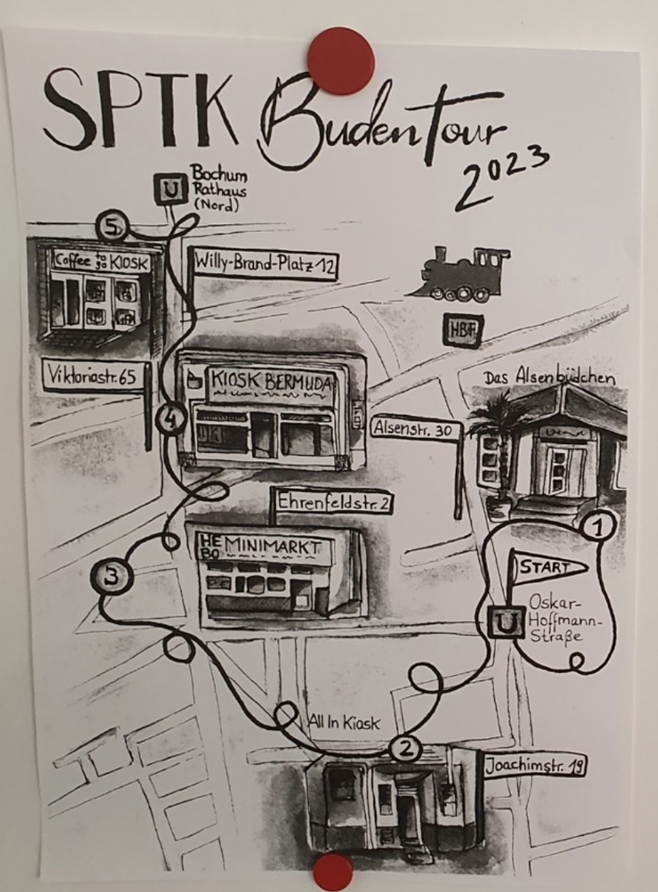 SPTK BudenTour
2023
U
Bochum
Rathaus
(Nord)
5
Coffee to go KIOSK
Willy-Brand-Platz 12
HBF
Viktoriastr. 65
KIOSK BERMUDA
4
Das Alsenbüdchen
Alsenstr. 30
Ehrenfeldstr. 2
HE
BO MINIMARKT
1
3
START
U
Oskar-
Hoffmann-
Straße
All In Kiosk
2
Joachimstr. 19